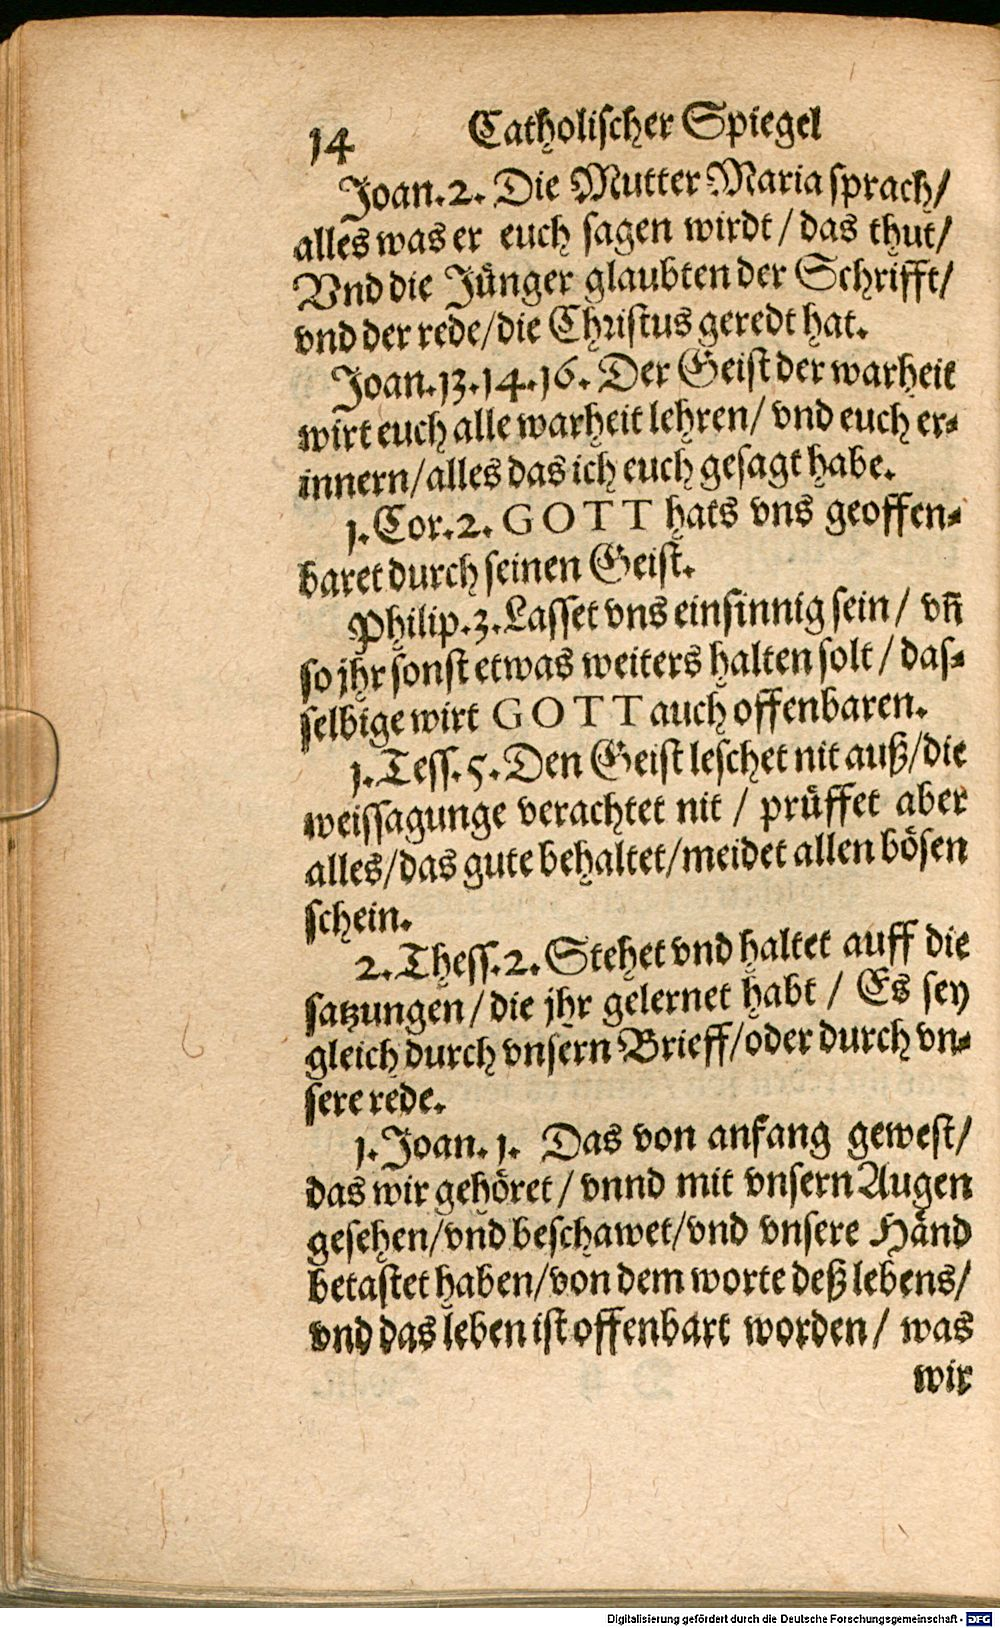 14 Catholischer Spiegel
Joan.2. Die Mutter Maria sprach/
alles was er euch sagen wirdt / das thut/
Vnd die Jünger glaubten der Schrifft/
vnd der rede/die Christus geredt hat.
Joan.13.14.16. Der Geist der warheit
wirt euch alle warheit lehren/ vnd euch er⸗
innern/alles das ich euch gesagt habe.
1.Cor.2. GOTT hats vns geoffen⸗
baret durch seinen Geist.
Philip.3. Lasset vns einsinnig sein/ vñ
so jhr sonst etwas weiters halten solt / das⸗
selbige wirt GOTT auch offenbaren.
1.Tess.5. Den Geist leschet nit auß/die
weissagunge verachtet nit / prüffet aber
alles/das gute behaltet/meidet allen bösen
schein.
2.Thess.2. Stehet vnd haltet auff die
satzungen/die jhr gelernet habt / Es sey
gleich durch vnsern Brieff/oder durch vn⸗
sere rede.
1.Joan.1. Das von anfang gewest/
das wir gehöret/ vnnd mit vnsern Augen
gesehen/vnd beschawet/vnd vnsere Händ
betastet haben/von dem worte deß lebens/
vnd das leben ist offenbart worden/ was
wir
Digitalisierung gefördert durch die Deutsche Forschungsgemeinschaft - DFG